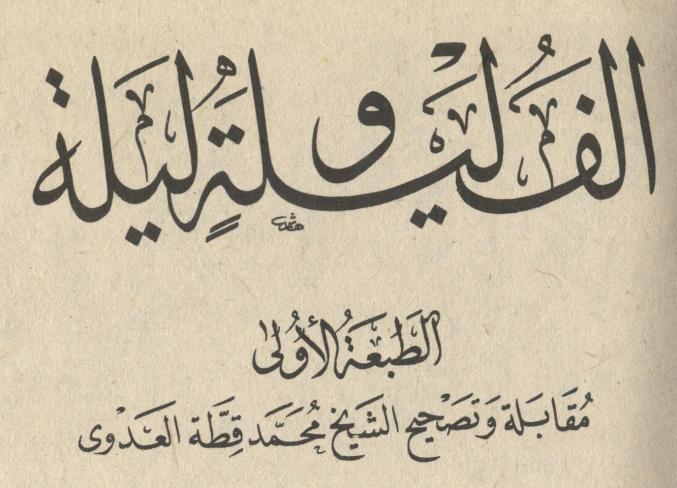 الف ليلة وليلة
الطَّبعَة الأُولى
مُقَابَلة وَتصَحيح الشَيخ مُحمَّد قِطَّة العَدْوى